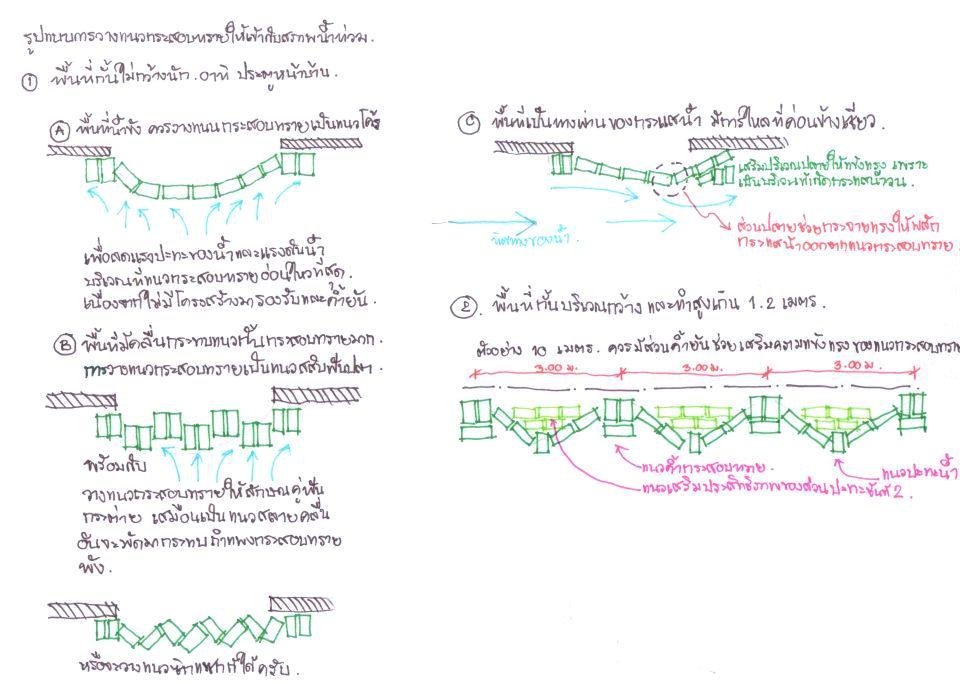 รูปแบบการวางแนวกระสอบทรายให้เข้ากับสภาพน้ำท่วม.
① พื้นที่กั้นไม่กว้างนัก. อาทิ ประตูหน้าบ้าน.
Ⓐ พื้นที่น้ำขัง ควรวางแนวกระสอบทรายเป็นแนวโค้ง
เพื่อลดแรงปะทะของน้ำและแรงดันน้ำ
บริเวณที่แนวกระสอบทรายอ่อนไหวที่สุด.
เนื่องจากไม่มีโครงสร้างมารองรับและค้ำยัน.
Ⓑ พื้นที่มีคลื่นกระทบแนวกั้นกระสอบทรายมาก.
การวางแนวกระสอบทรายเป็นแนวสลับฟันปลา.
พร้อมกับ
วางแนวกระสอบทรายให้ลักษณะคู่ฟัน
กระต่าย เสมือนเป็นแนวสลายคลื่น
อันจะพัดมากระทบกำแพงกระสอบทราย
พัง.
หรือจะวางแนวก็ได้ครับ.
Ⓒ พื้นที่เป็นทางผ่านของกระแสน้ำ มีการไหลที่ค่อนข้างเชี่ยว.
เสริมบริเวณปลายให้แข็งแรง เพราะ
เป็นบริเวณที่เกิดกระแสน้ำวน.
ทิศทางของน้ำ.
ส่วนปลายช่วยกระจายแรงให้ผลัก
กระแสน้ำออกจากแนวกระสอบทราย.
②. พื้นที่กั้นบริเวณกว้าง และทำสูงเกิน 1.2 เมตร.
ตัวอย่าง 10 เมตร. ควรมีส่วนค้ำยันช่วยเสริมความแข็งแรงของแนวกระสอบทราย
3.00 ม. 3.00 ม. 3.00 ม.
แนวค้ำกระสอบทราย.
แนวปะทะน้ำ
แนวเสริมประสิทธิภาพของส่วนปะทะชั้นที่ 2.